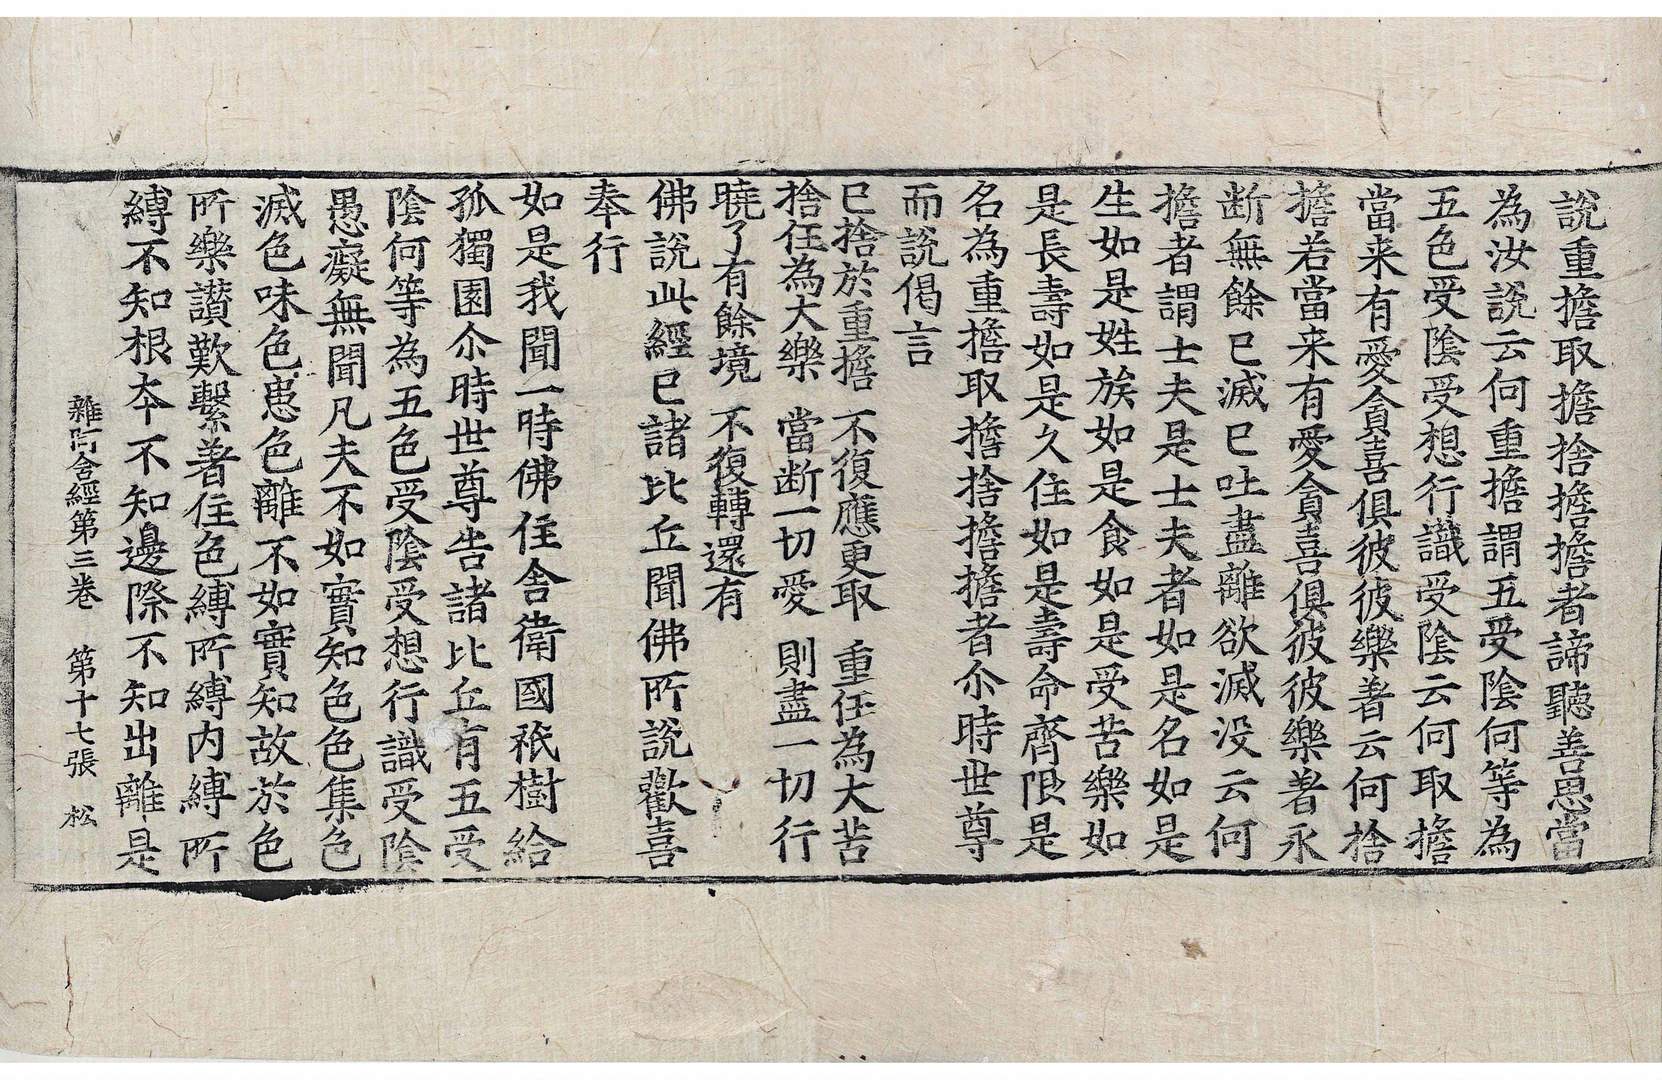 說重擔取擔捨擔擔者諦聽善思當
為汝說云何重擔謂五受陰何等為
五色受陰受想行識受陰云何取擔
當来有愛貪喜俱彼彼樂著云何捨
擔若當来有愛貪喜俱彼彼樂著永
断無餘已滅已吐盡離欲滅没云何
擔者謂士夫是士夫者如是名如是
生如是姓族如是食如是受苦樂如
是長壽如是久住如是壽命齊限是
名為重擔取擔捨擔擔者尒時世尊
而說偈言
已捨於重擔 不復應更取 重任為大苦
捨任為大樂 當断一切愛 則盡一切行
曉了有餘境 不復轉還有
佛說此經已諸比丘聞佛所說歡喜
奉行
如是我聞一時佛住舍衛國祇樹給
孤獨園尒時世尊告諸比丘有五受
陰何等為五色受陰受想行識受陰
愚癡無聞凡夫不如實知色色集色
滅色味色患色離不如實知故於色
所樂讃歎繫著住色縛所縛内縛所
縛不知根本不知邊際不知出離是
雜阿含經第三卷 第十七張 松